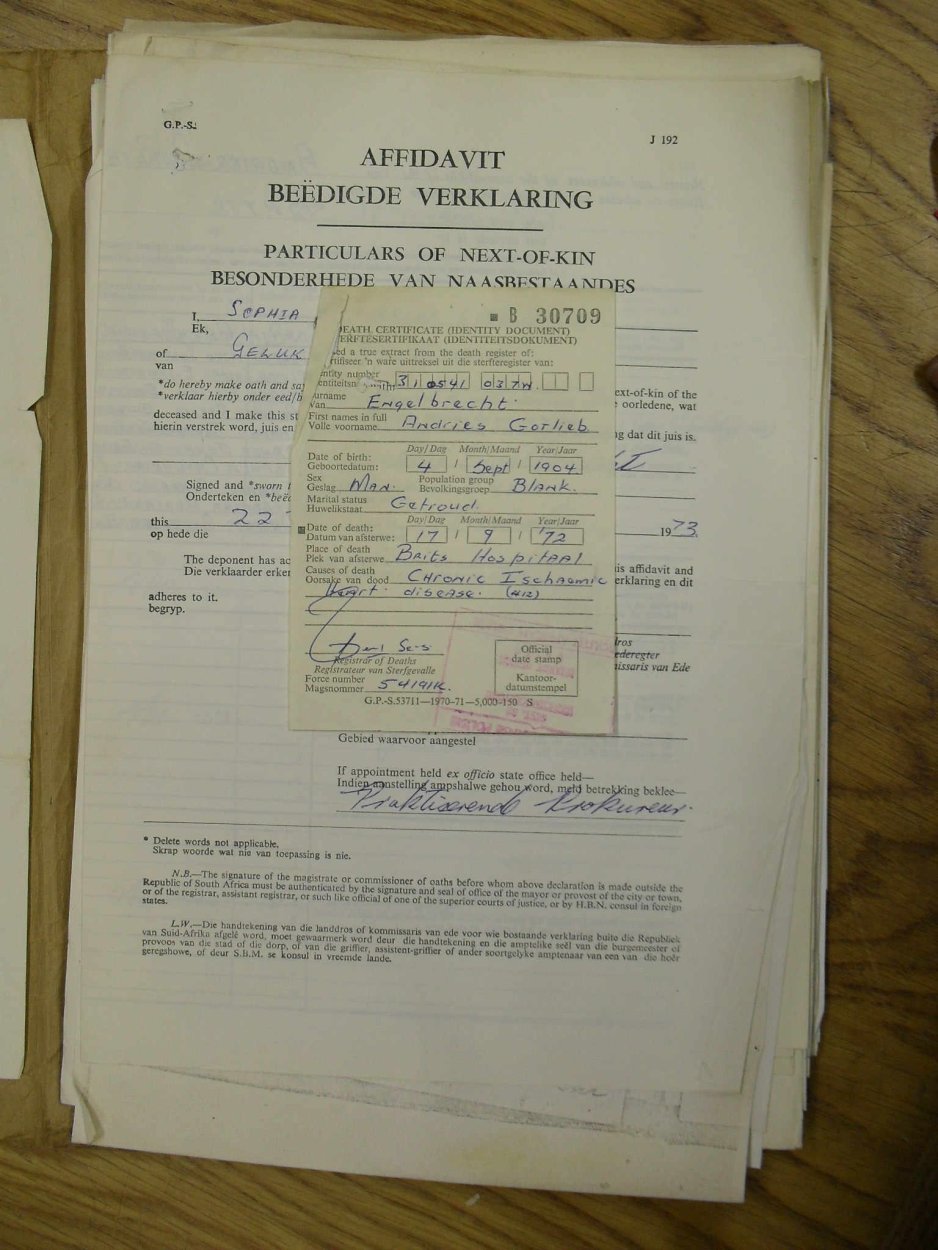 G.P.-S.
J 192
AFFIDAVIT
BEËDIGDE VERKLARING
PARTICULARS OF NEXT-OF-KIN
BESONDERHEDE VAN NAASBESTAANDES
I, SOPHIA
Ek,
of GELUK
van
*do hereby make oath and say
*verklaar hierby onder eed/b
ext-of-kin of the
oorledene, wat
deceased and I make this st
hierin verstrek word, juis en
g dat dit juis is.
Signed and *sworn t
Onderteken en *beëd
this 22
op hede die
1973.
The deponent has ac
Die verklaarder erken
is affidavit and
erklaring en dit
adheres to it.
begryp.
dros
ederegter
issaris van Ede
B 30709
DEATH CERTIFICATE (IDENTITY DOCUMENT)
ERFTESERTIFIKAAT (IDENTITEITSDOKUMENT)
ed a true extract from the death register of:
rtifiseer 'n ware uittreksel uit die sterfteregister van:
entity number
entiteitsn 310541 037W
urname
Van Engelbrecht
First names in full
Volle voorname Andries Gotlieb
Day/Dag Month/Maand Year/Jaar
Date of birth:
Geboortedatum: 4 / Sept / 1904
Sex
Geslag Man.
Population group
Bevolkingsgroep Blank.
Marital status
Huwelikstaat Getroud.
Day/Dag Month/Maand Year/Jaar
Date of death:
Datum van afsterwe: 17 / 9 / '72
Place of death
Plek van afsterwe Brits Hospitaal
Causes of death
Oorsake van dood Chronic Ischaemic
Heart disease. (412)
Registrar of Deaths
Registrateur van Sterfgevalle
Force number
Magsnommer 54191K.
Official
date stamp
Kantoor-
datumstempel
G.P.-S.53711—1970-71—5,000-150 S
Gebied waarvoor aangestel
If appointment held ex officio state office held—
Indien aanstelling ampshalwe gehou word, meld betrekking beklee—
Praktiserende Prokureur
* Delete words not applicable.
Skrap woorde wat nie van toepassing is nie.
N.B.—The signature of the magistrate or commissioner of oaths before whom above declaration is made outside the
Republic of South Africa must be authenticated by the signature and seal of office of the mayor or provost of the city or town,
or of the registrar, assistant registrar, or such like official of one of the superior courts of justice, or by H.B.N. consul in foreign
states.
L.W.—Die handtekening van die landdros of kommissaris van ede voor wie bostaande verklaring buite die Republiek
van Suid-Afrika afgelê word, moet gewaarmerk word deur die handtekening en die amptelike seël van die burgemeester of
provoos van die stad of die dorp, of van die griffier, assistent-griffier of ander soortgelyke amptenaar van een van die hoër
geregshowe, of deur S.B.M. se konsul in vreemde lande.